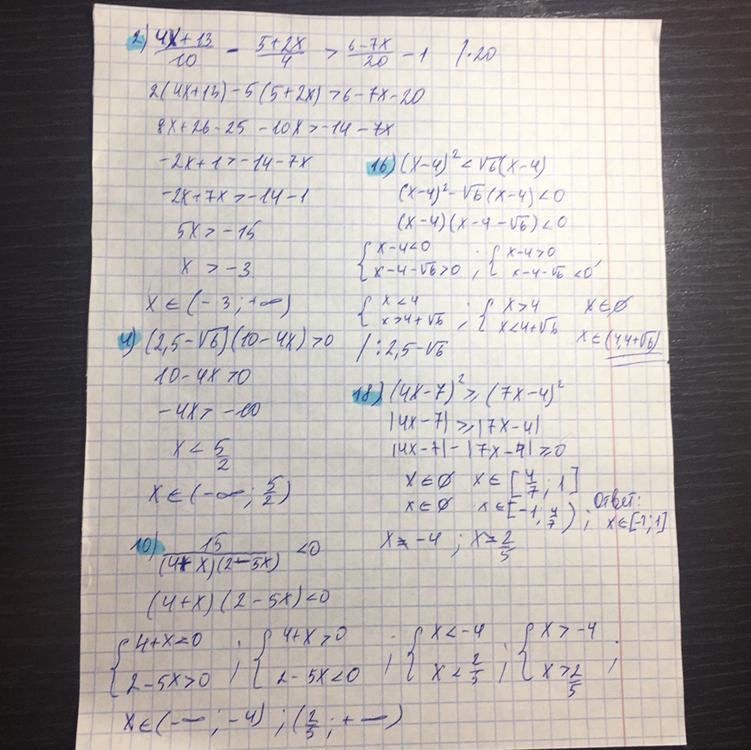 2) (4x+13)/10 - (5+2x)/4 > (6-7x)/20 - 1 |·20
2(4x+13) - 5(5+2x) > 6-7x-20
8x+26-25-10x > -14-7x
-2x+1 > -14-7x
-2x+7x > -14-1
5x > -15
x > -3
x ∈ (-3; +∞)
4) (2,5-√6)(10-4x) > 0 | : 2,5-√6
10-4x > 0
-4x > -10
x < 5/2
x ∈ (-∞; 5/2)
10) 15/((4+x)(2-5x)) < 0
(4+x)(2-5x) < 0
{4+x<0 2-5x>0 ; {4+x>0 2-5x<0 ; {x<-4 x<2/5 ; {x>-4 x>2/5 ;
x ∈ (-∞; -4) ; (2/5; +∞)
16) (x-4)² < √6(x-4)
(x-4)² - √6(x-4) < 0
(x-4)(x-4-√6) < 0
{x-4<0 x-4-√6>0 ; {x-4>0 x-4-√6<0 ;
{x<4 x>4+√6 ; {x>4 x<4+√6 x∈∅
x∈(4,4+√6)
18) (4x-7)² ≥ (7x-4)²
|4x-7| ≥ |7x-4|
|4x-7| - |7x-4| ≥ 0
x∈∅ x∈[4/7; 1]
x∈∅ x∈[-1; 4/7) ; Ответ: x∈[-1; 1]
x = -4 ; x = 2/5